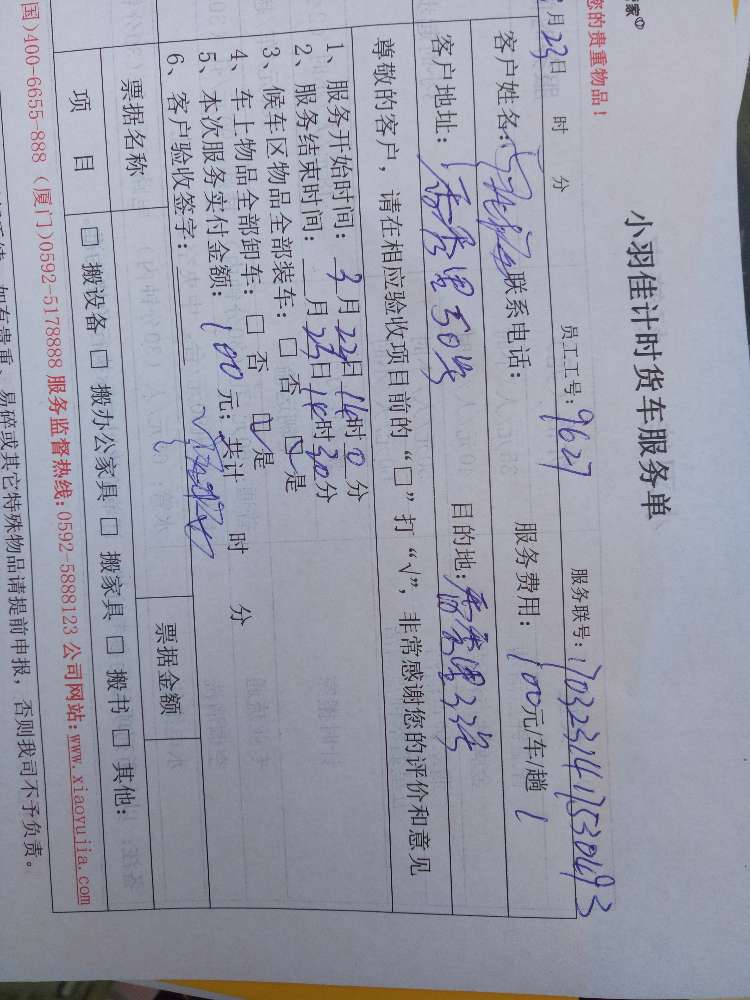 家①
您的贵重物品！
小羽佳计时货车服务单
月23日 时 分 员工工号：9627 服务联号：1703231417530493
客户姓名： 联系电话： 服务费用：100元/车/趟 1
客户地址： 50号 目的地： 23号
尊敬的客户，请在相应验收项目前的“□”打“√”，非常感谢您的评价和意见
1、服务开始时间：3月23日14时0分
2、服务结束时间：月23日14时30分
3、候车区物品全部装车：□ 否 ☑是
4、车上物品全部卸车：□ 否 ☑是
5、本次服务实付金额：100元；共计 时 分
6、客户验收签字：
票据名称 票据金额
项 目 □ 搬设备 □ 搬办公家具 □ 搬家具 □ 搬书 □ 其他:
国)400-6655-888 (厦门)0592-5178888 服务监督热线:0592-5888123 公司网站:www.xiaoyujia.com
如有贵重、易碎或其它特殊物品请提前申报，否则我司不予负责。